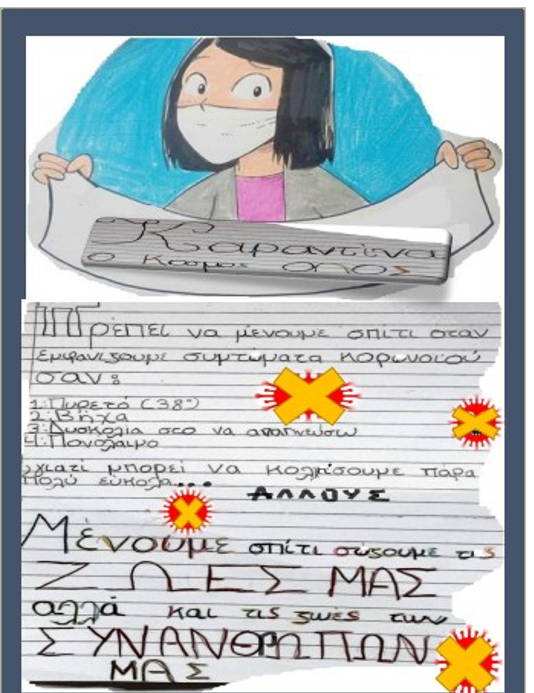 Καραντίνα
ο κόσμος όλος
Πρέπει να μένουμε σπίτι όταν
εμφανίζουμε συμτώματα κορωνοϊού
σαν:
1:Πυρετό (38°)
2:Βήχα
3:Δυσκολία στο να αναπνεύσω
4:Πονόλαιμο
γιατί μπορεί να κολλήσουμε πάρα
πολύ εύκολα...
ΑΛΛΟΥΣ
Μένουμε σπίτι σώζουμε τις
ΖΩΕΣ ΜΑΣ
αλλά και τις ζωές των
ΣΥΝΑΝΘΡΩΠΩΝ
ΜΑΣ